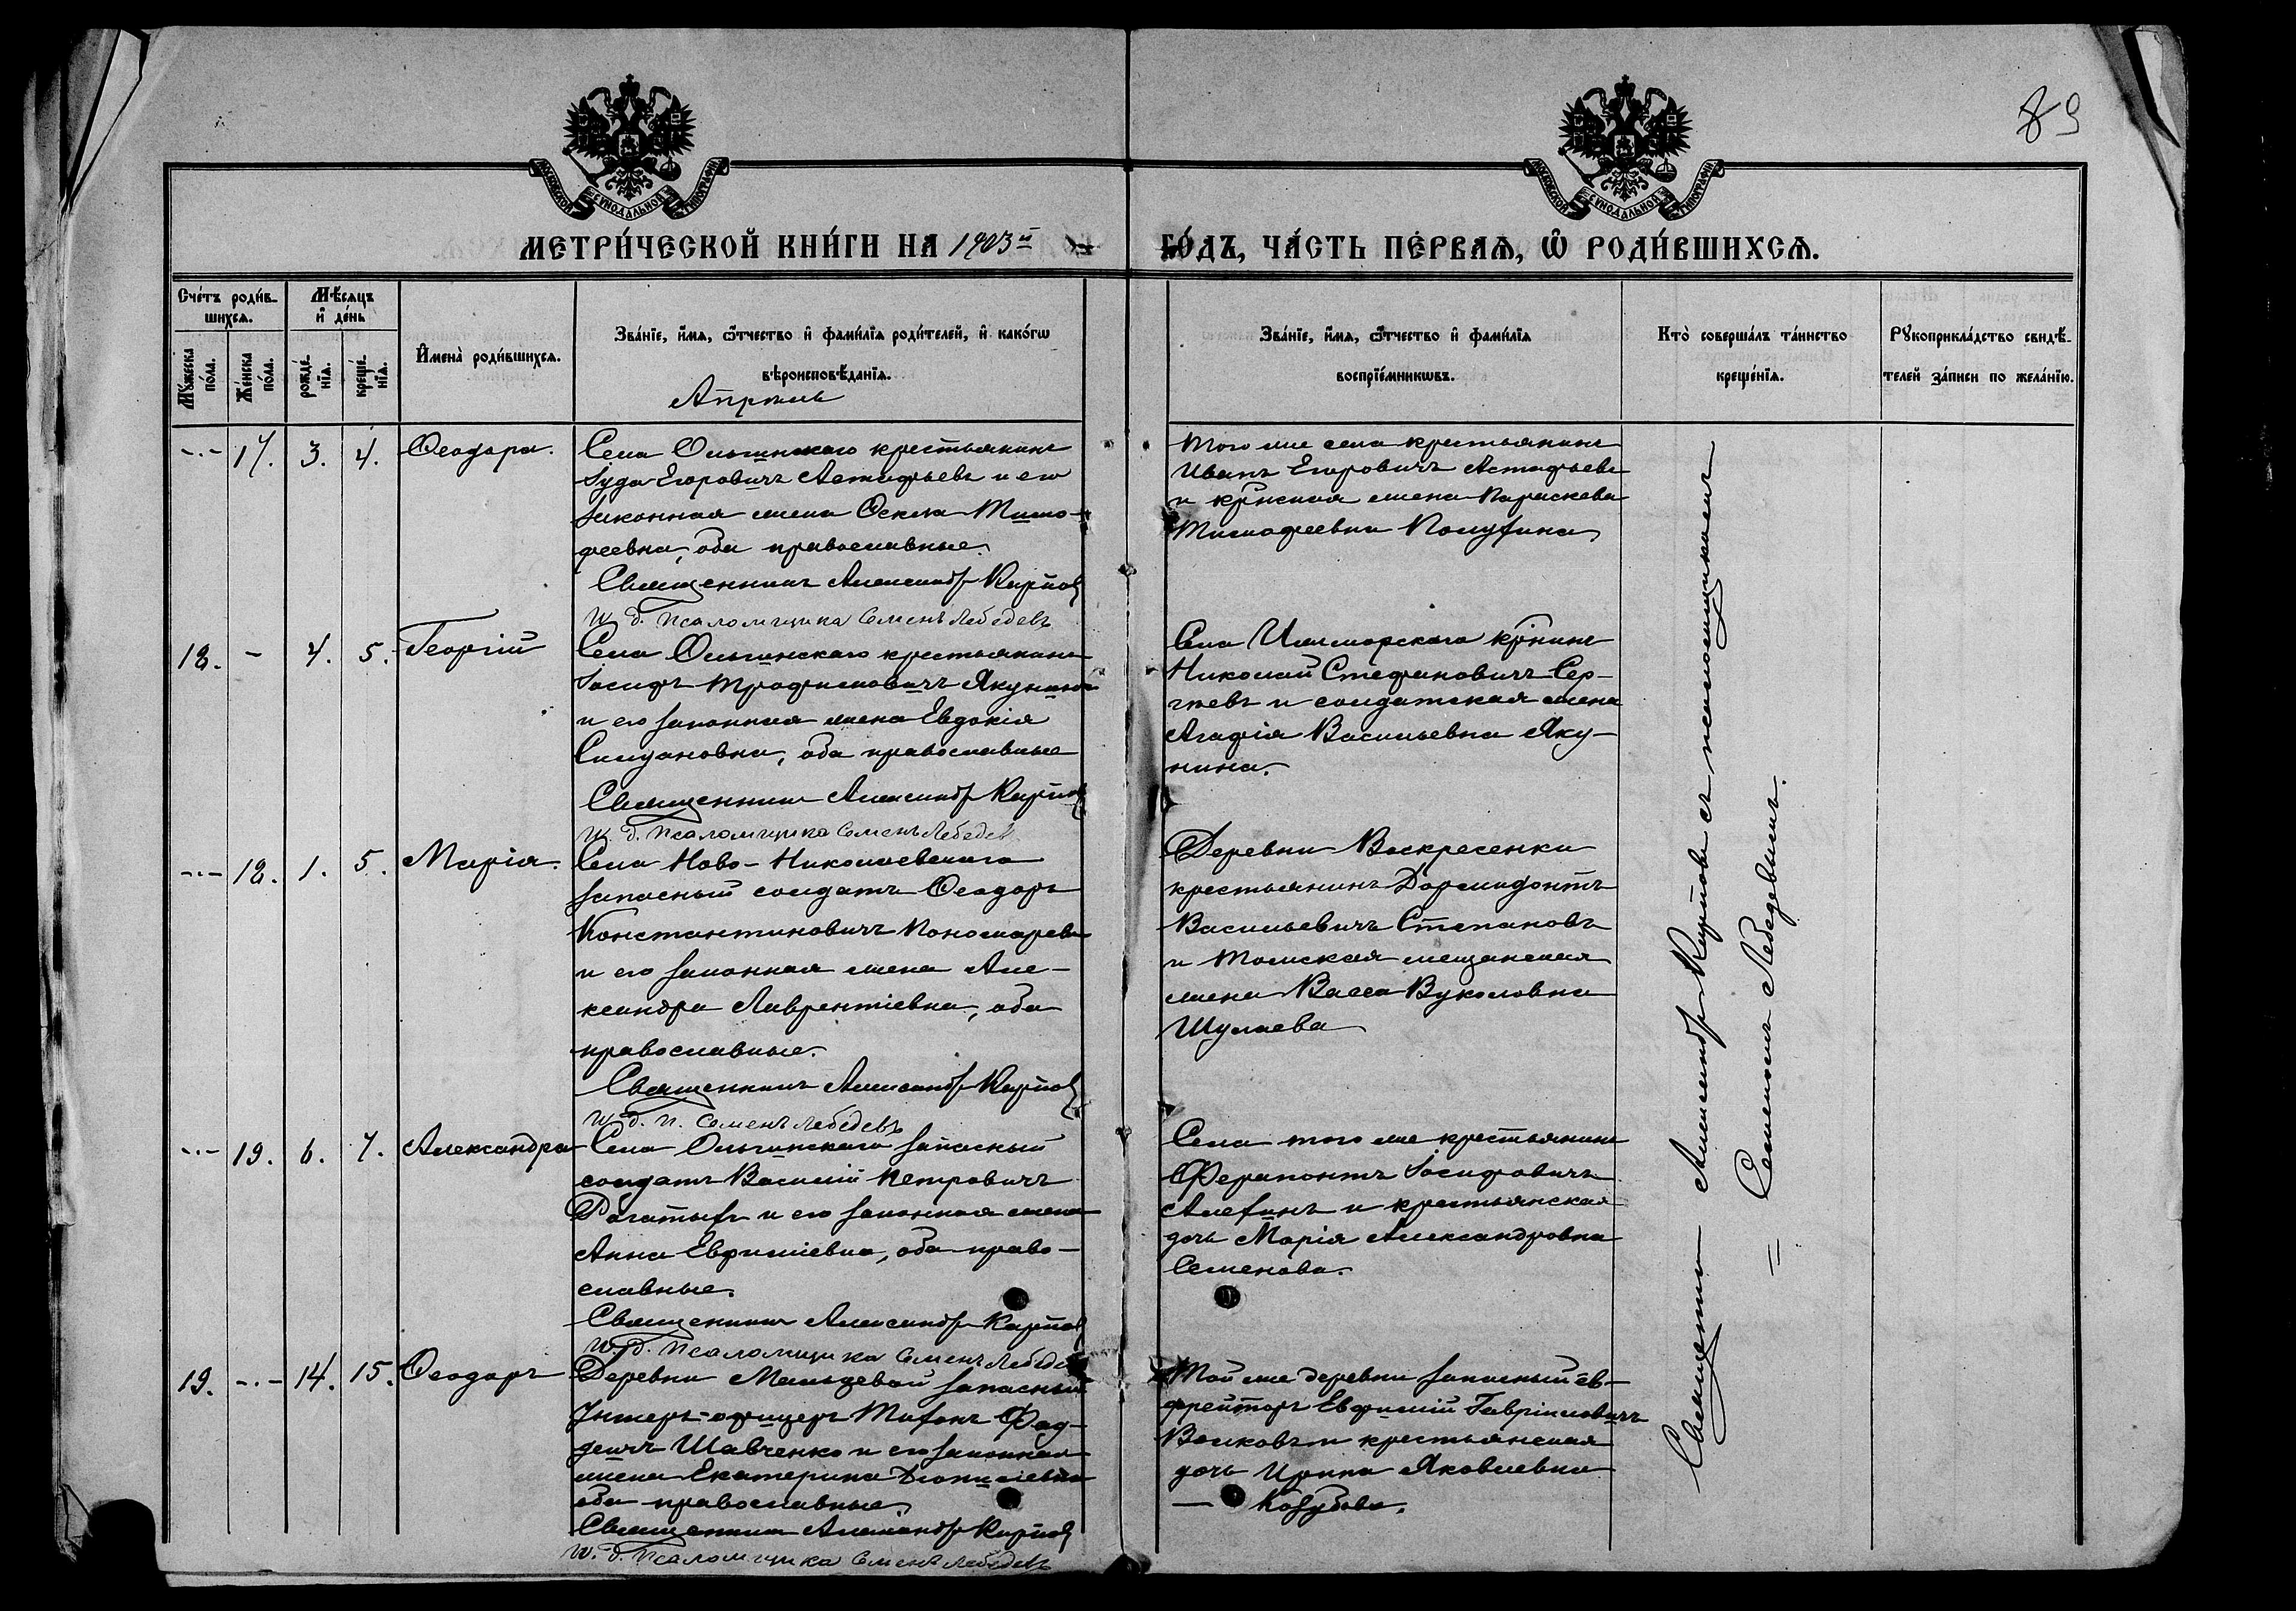 89
МОСКОВСКОЙ СУНОДАЛЬНОЙ ТИПОГРАФІИ
МОСКОВСКОЙ СУНОДАЛЬНОЙ ТИПОГРАФІИ
МЕТРИ́ЧЕСКОЙ КНИ́ГИ НА 1903й ГО́ДЪ, ЧА́СТЬ ПЕ́РВАѦ, Ѡ҆ РОДИ́ВШИХСѦ.
Сче́тъ роди́в-
шихсѧ.
Мѣ́сѧцъ
и҆ де́нь
Мꙋ́жеска по́ла.
Же́нска по́ла.
рожде́-
нїѧ.
креще́-
нїѧ.
И҆мена̀ роди́вшихсѧ.
Зва́нїе, и҆́мѧ, ѻ҆́тчество и҆ фами́лїѧ роди́телей, и҆ како́гѡ
вѣроисповѣ́данїѧ.
Зва́нїе, и҆́мѧ, ѻ҆́тчество и҆ фами́лїѧ
воспрїе́мникѡвъ.
Кто̀ соверша́лъ та́инство
креще́нїѧ.
Рꙋкоприкла́дство свидѣ́-
телей за́писи по жела́нїю.
Апрѣль
-·- 17. 3. 4. Ѳеодора.
Села Ольгинскаго крестьянинъ
Іуда Егоровичъ Астафьевъ и его
законная жена Ѳекла Тимо-
феевна, оба православные.
Священникъ Александр Карпов
И. д. псаломщика Семенъ Лебедевъ
Того же села крестьянинъ
Иванъ Егоровичъ Астафьевъ
и крнская жена Параскева
Тимофеевна Полузина
12. - 4. 5. Георгій
Села Ольгинскаго крестьянинъ
Іосифъ Трофимовичъ Якунинъ
и его законная жена Евдокія
Силуановна, оба православные
Священникъ Александр Карпов
И. д. псаломщика Семенъ Лебедев
Села Ижморскаго крнинъ
Николай Стефановичъ Сер-
гѣевъ и солдатская жена
Агафія Васильевна Яку-
нина.
-·- 18. 1. 5. Марія.
Села Ново-Николаевскаго
запасный солдатъ Ѳеодоръ
Константиновичъ Пономаревъ
и его законная жена Але-
ксандра Лаврентіевна, оба
православные.
Священникъ Александр Карпов
И. д. п. Семенъ Лебедевъ
Деревни Воскресенки
крестьянинъ Дормидонтъ
Васильевичъ Степановъ
и Томская мещанская
жена Васса Вуколовна
Шулаева
-·- 19. 6. 7. Александра
Села Ольгинскаго запасный
солдатъ Василій Петровичъ
Рогатыхъ и его законная жена
Анна Евфиміевна, оба право-
славные.
Священникъ Александр Карпов
И. д. псаломщика Семенъ Лебедев
Села того же крестьянинъ
Ферапонтъ Іосифовичъ
Алехинъ и крестьянская
дочь Марія Александровна
Семенова.
19. -·- 14. 15. Ѳеодоръ
Деревни Мальцевой запасный
унтеръ-офицеръ Тихонъ Фад-
деичъ Шавченко и его законная
жена Екатерина Діонисіевна
оба православные
Священникъ Александр Карпов
И. д. псаломщика Семенъ Лебедевъ
Той же деревни запасный еф-
рейторъ Евфимій Гавріиловичъ
Волковъ и крестьянская
дочь Ирина Яковлевна
— Козубова.
Священникъ Александр Карповъ съ псаломщикомъ
= Семеномъ Лебедевымъ.